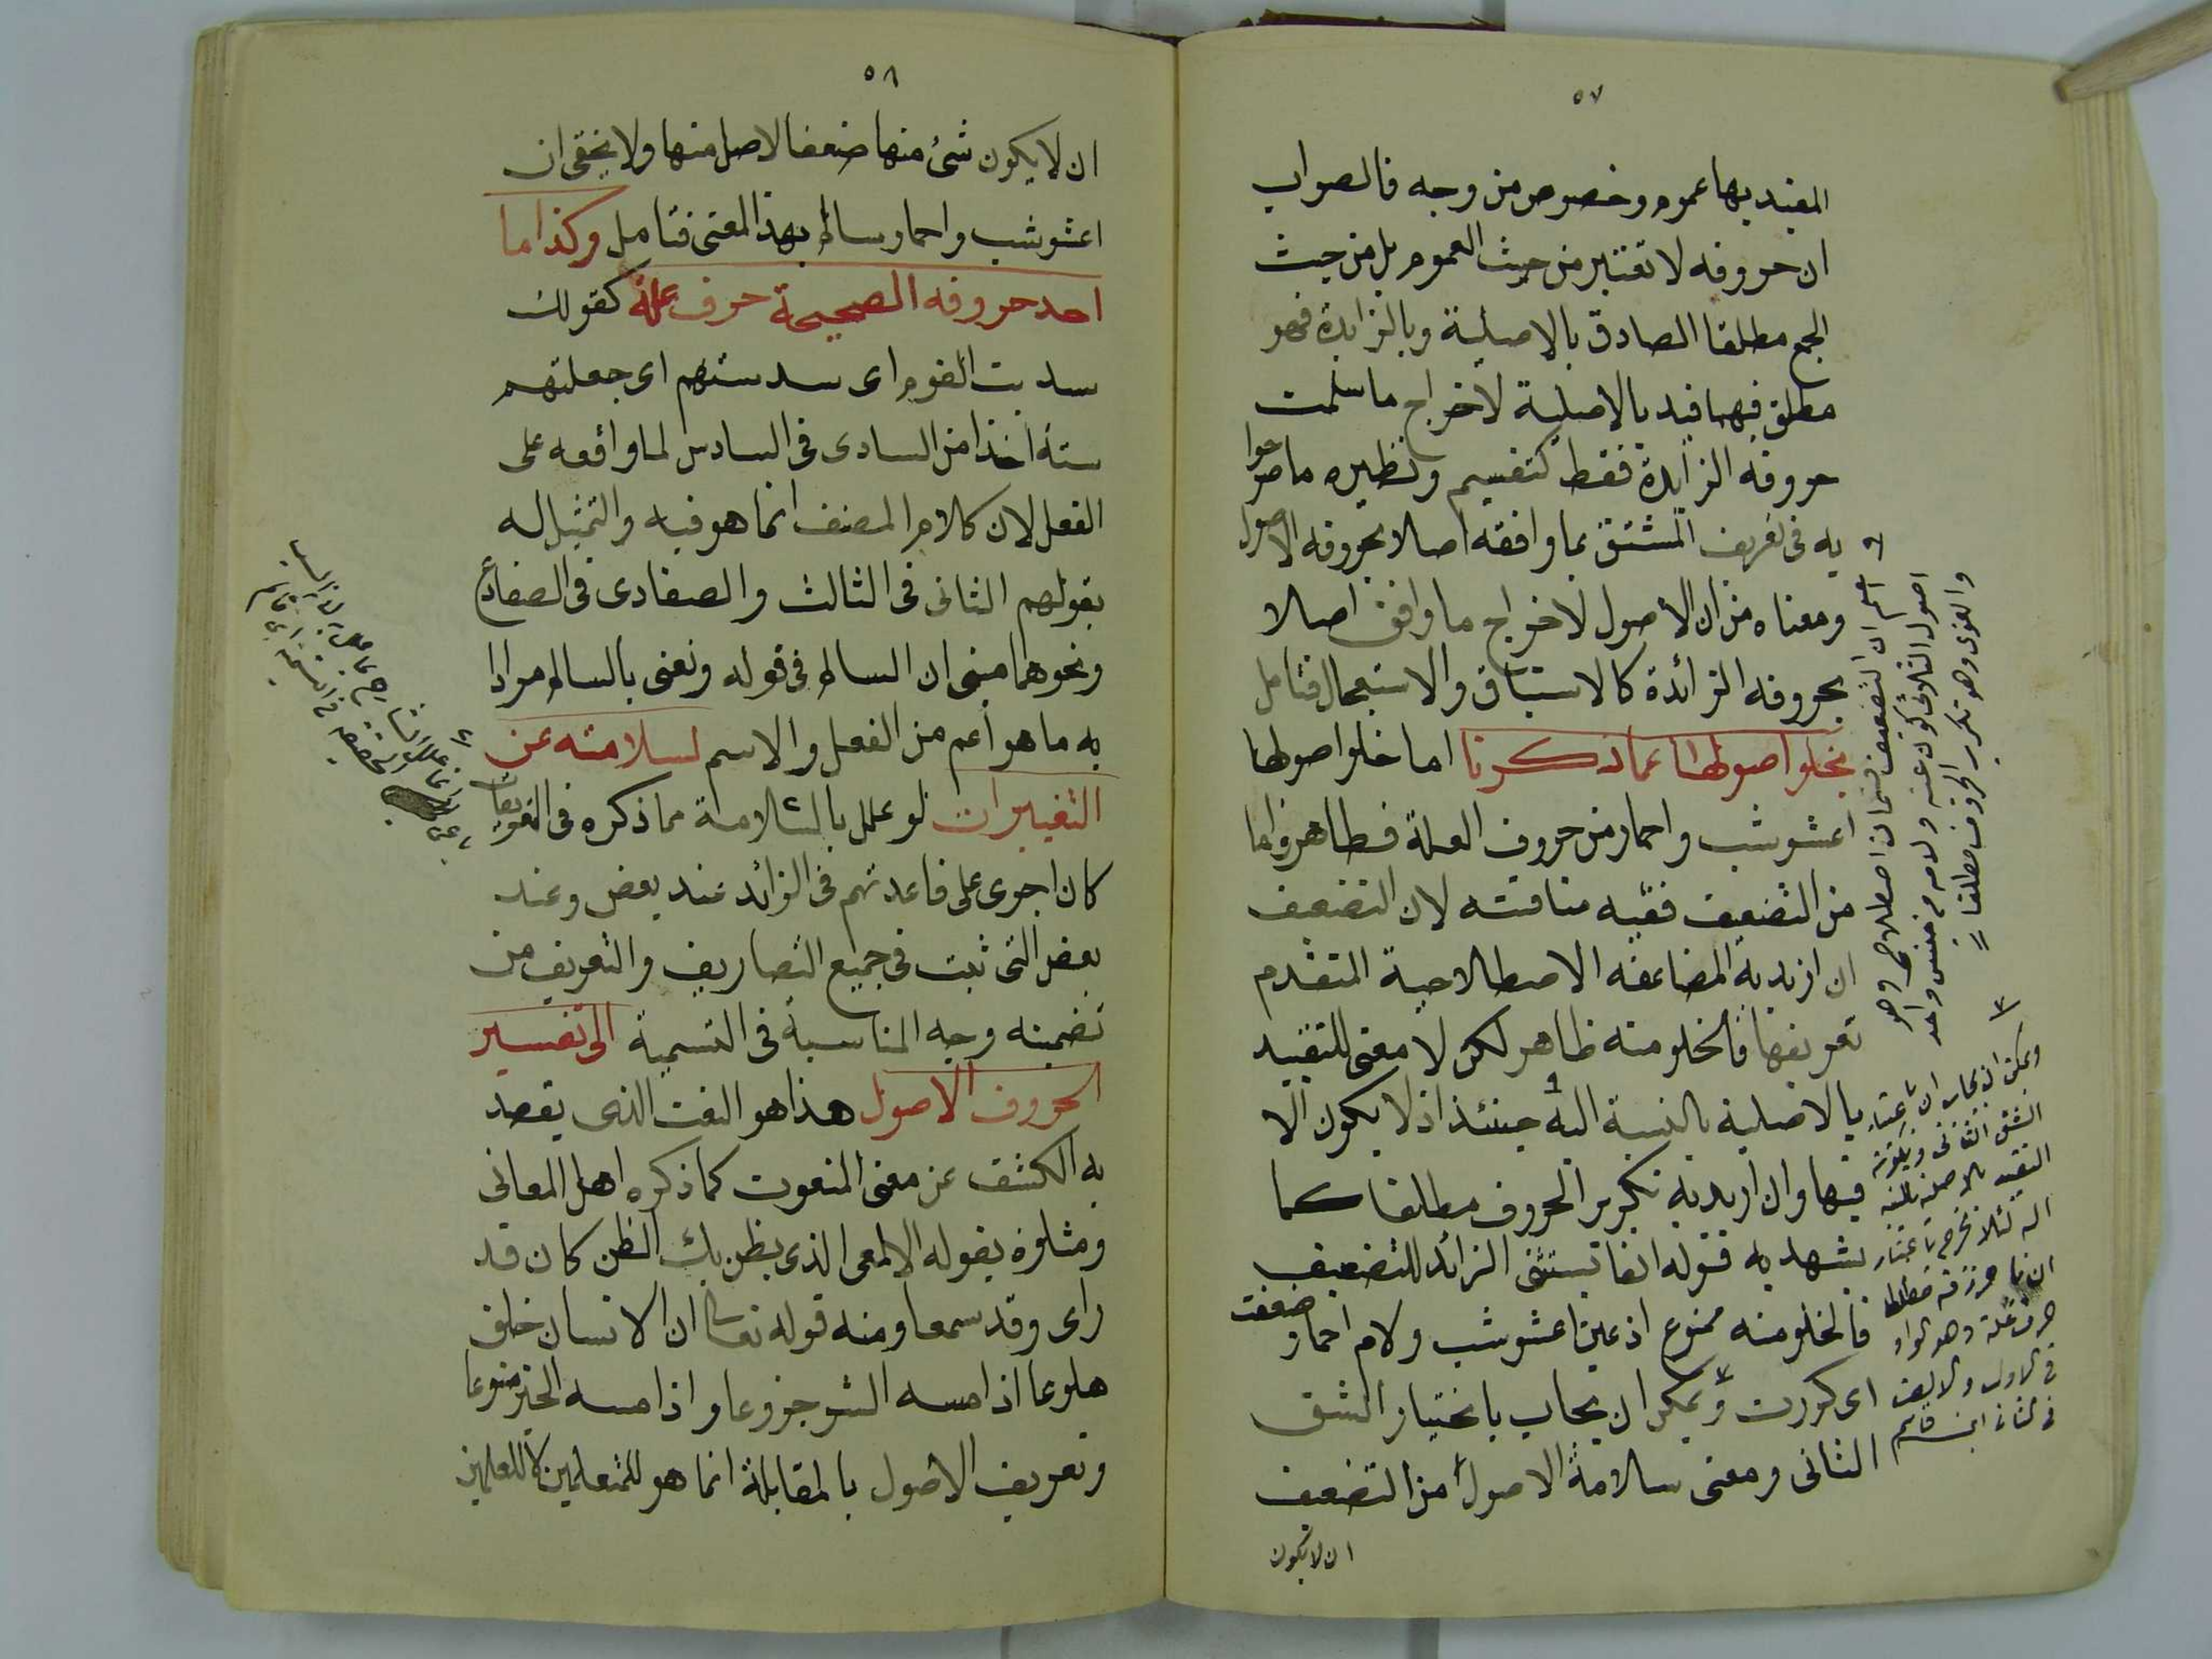 ٥٧
المقيد بها عموم وخصوص من وجه فالصواب
ان حروفه لا تعتبر من حيث العموم بل من حيث
الجمع مطلقا الصادق بالاصلية وبالزايدة فهو
مطلق فيهما قيد بالاصلية لاخراج ما سلمت
حروفه الزايدة فقط كتقسيم ونظيره ما صرحوا
به فى تعريف المشتق بما وافقه اصلا بحروفه الاصول
ومعناه من ان الأصول لاخراج ما وافق اصلا
بحروفه الزائدة كالاستباق والاستعجال فتامل
بخلوا صولهما عما ذكرنا اما خلوا صولهما
اعشوشب واحمار من حروف العلة فظاهر واما
من التضعيف ففيه مناقشه لان التضعيف
ان اريد به المضاعفه الاصطلاحية المتقدم
تعريفها فالخلو منه ظاهر لكن لا معنى للتقييد
بالاصلية بالنسبة اليه حينئذ اذ لا يكون الا
فيها وان اريد به تكرير الحروف مطلقا كما
يشهد به قوله انفا تستثنى الزائد للتضعيف
فالخلو منه ممنوع اذ عين اعشوشب ولام احمار ضعفت
اى كررت ويمكن ان يجاب باختيار الشق
الثانى ومعنى سلامة الاصول من التضعيف
ان لا يكون
اعلم ان التضعيف قسمان اصطلاحى وهو
اصول الثلاثى كون عينه ولامه من جنس واحد
والغوى وهو تكرير الحروف مطلقا
ويمكن ان يجاب ان باعتبار
الشق الثانى ويكون
التقييد بالاصلية بالنسبة
اليه لئلا يخرج باعتبار
حرف علة وهو الواو
فى الاول والالف
فى الثانى ابن قاسم
٥٨
ان لا يكون شئ منها ضعفا لاصل منها ولا يخفى ان
اعشوشب واحمار سالم بهذا المعنى فتامل وكذا ما
احد حروفه الصحيحة حرف علة كقولك
سديت القوم اى سدستهم اى جعلتهم
ستة اخذا من السادى فى السادس لما واقعه على
الفعل لان كلام المصنف انما هو فيه والتمثيل له
بقولهم الثانى فى الثالث والضفادى فى الضفادع
ونحوهما مبنى ان السالم فى قوله ونعنى بالسالم مرادا
به ما هو أعم من الفعل والاسم لسلامته عن
التغييرات لو علل بالسلامة مما ذكره فى التعريفات
كان اجرى على قاعدتهم فى الزائد عند بعض وعند
بعض التى ثبت فى جميع التصاريف والتعريف من
تضمينه وجه المناسبة فى التسمية الى تفسير
الحروف الاصول هذا هو النعت الذى يقصد
به الكشف عن معنى المنعوت كما ذكره اهل المعانى
ومثلوه بقوله الالمعى الذى يظن بك الظن كان قد
راى وقد سمعا ومنه قوله تعالى ان الانسان خلق
هلوعا اذا مسه الشر جزوعا واذا مسه الخير منوعا
وتعريف الاصول بالمقابلة انما هو للمتعلمين لا للعلمين